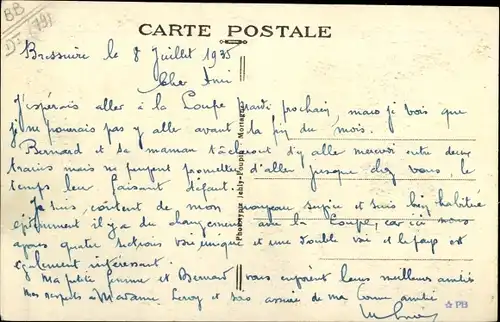 BB
CARTE POSTALE
Bressuire le 8 Juillet 1935
Cher Ami
J'espérais aller à la Loupe mardi prochain, mais je vois que
je ne pourrais pas y aller avant la fin du mois.
Bernard et sa maman tâcheront d'y aller mercredi entre deux
trains mais ne peuvent promettre d'aller jusque chez vous, le
temps leur faisant défaut.
Je suis content de mon nouveau et suis bien habitué
il y a du changement avec la Loupe, car ici nous
avons quatre sections voie unique et une double voie et le pays est
également intéressant.
Ma petite femme et Bernard vous envoient leurs meilleurs amitiés
Mes respects à Madame Leroy et sois assuré de ma bonne amitié
Phototypie Jehly-Poupin, Mortagne
☆ PB